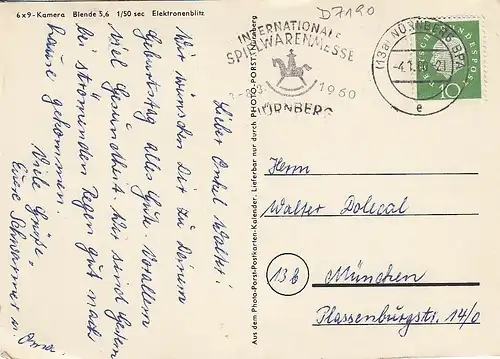 6x9-Kamera Blende 5,6 1/50 sec Elektronenblitz
D7190
Lieber Onkel Walter!
Wir wünschen Dir zu Deinem
Geburtstag alles Gute. Vorallem
viel Gesundheit. Wir sind Gestern
bei strömenden Regen gut nach
hause gekommen.
Viele Grüße
Eure Schwarmer u. Oma.
Aus dem Photo-Porst-Postkarten-Kalender. Lieferbar nur durch PHOTO-PORST Nürnberg
INTERNATIONALE
SPIELWARENMESSE
1960
NÜRNBERG
(13a) NÜRNBERG BPA
-4.1.
e
DEUTSCHE BUNDESPOST
10
Herrn
Walter Dolecal
13b München
Plassenburgstr. 14/0